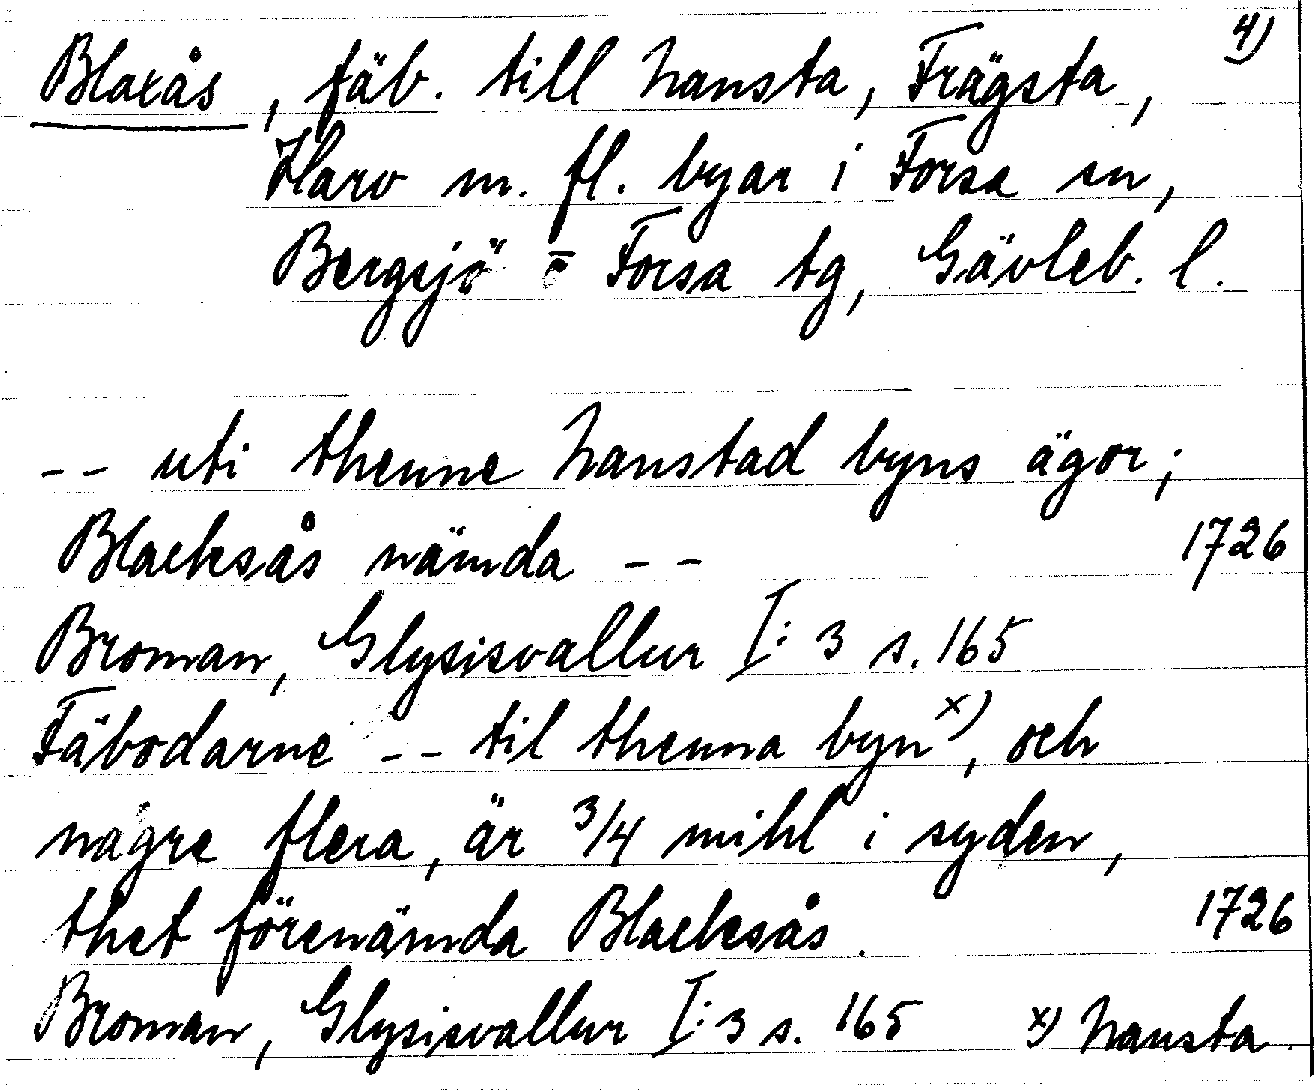 4)
Blaxås, fäb. till Hansta, Frägsta,
Harv m. fl. byar i Forsa sn,
Bergsjö o Forsa tg, Gävleb. l.
-- uti thenne Hanstad byns ägor;
Blacksås nämda -- 1726
Broman, Glysisvallur I:3 s. 165
Fäbodarne -- til thenna byn x), och
någre flera, är 3/4 mihl i syden,
thet förenämda Blacksås. 1726
Broman, Glysisvallur I:3 s. 165 x) Hansta.